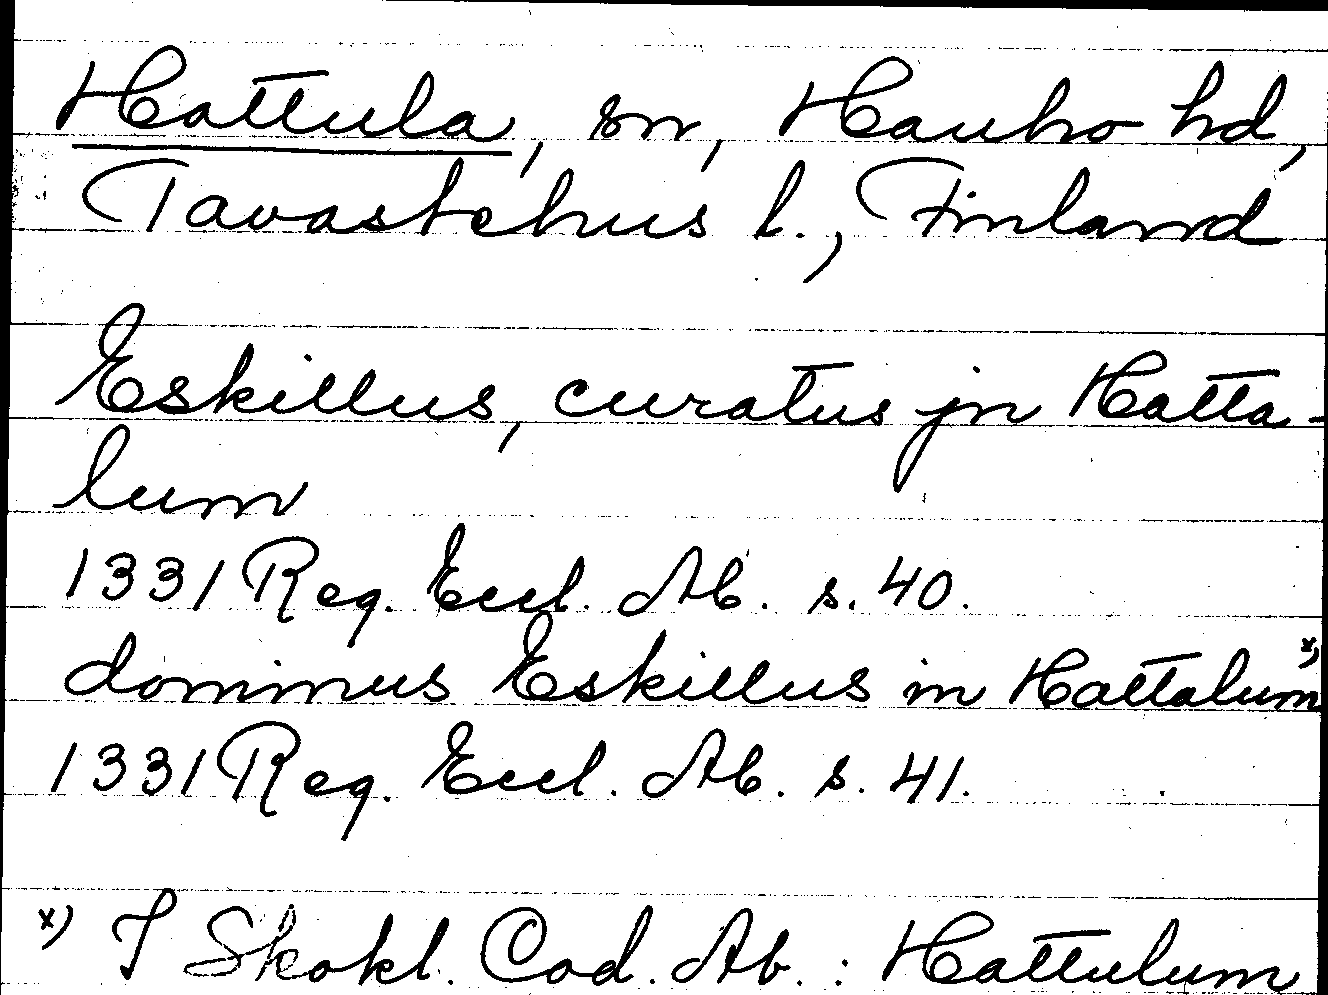 Hattula, sn, Hauho hd,
Tavastehus l., Finland
Eskillus, curatus jn Hatta-
lum
1331 Reg. Eccl. Ab. s. 40.
dominus Eskillus in Hattalum x)
1331 Reg. Eccl. Ab. s. 41.
x) I Skokl. Cod. Ab. : Hattulum